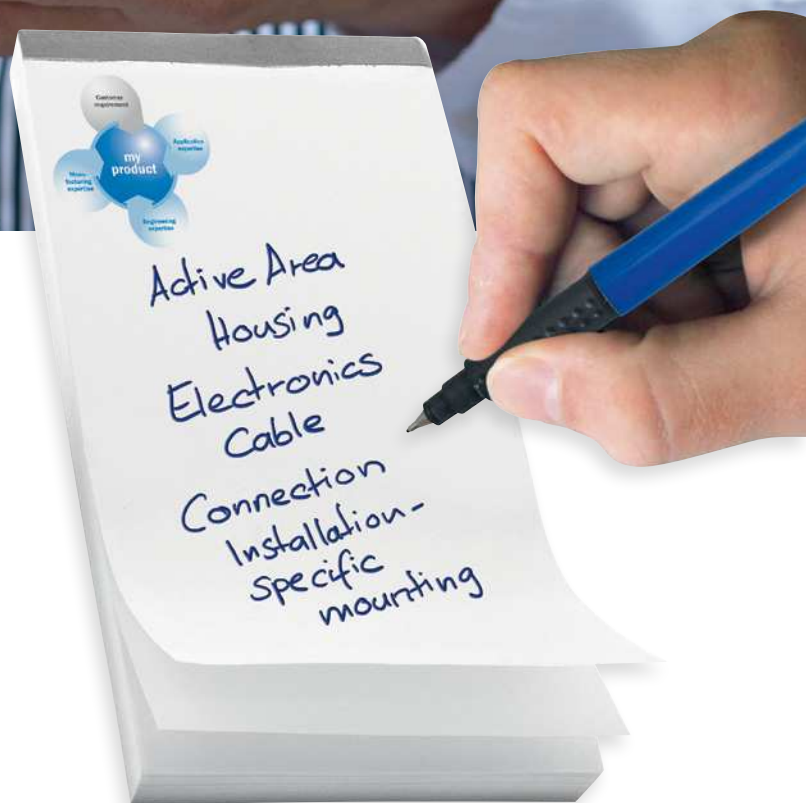 Customer
requirement
my
product
Application
expertise
Manu-
facturing
expertise
Engineering
expertise
Active Area
Housing
Electronics
Cable
Connection
Installation-
specific
mounting